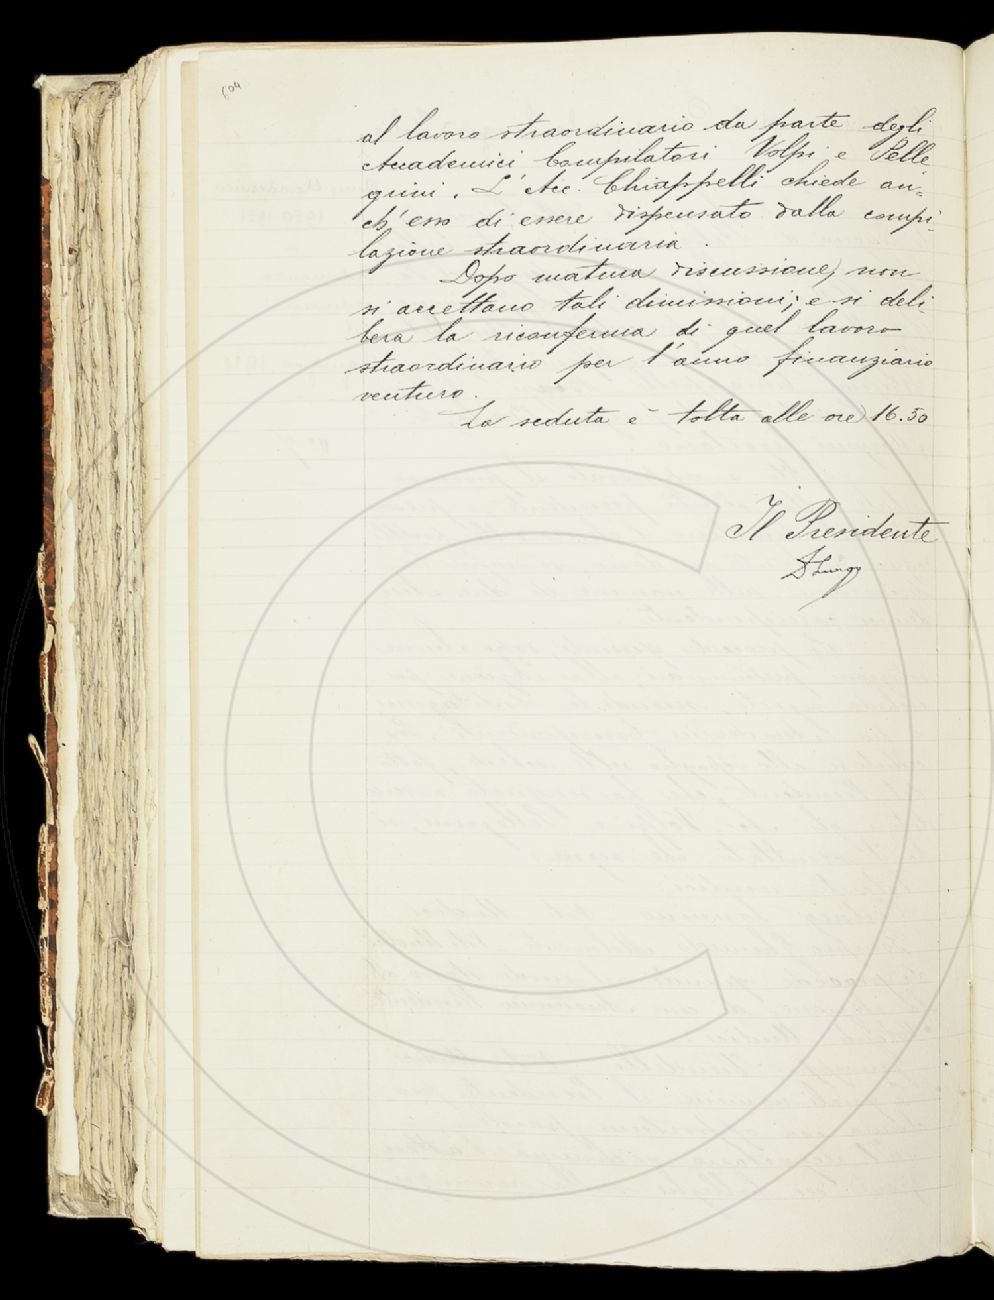 604
al lavoro straordinario da parte degli
Accademici Compilatori Volpi e Pelle
grini. L'Acc. Chiappelli chiede an=
ch'esso di essere dispensato dalla compi-
lazione straordinaria.
Dopo matura discussione, non
si accettano tali dimissioni; e si deli-
bera la riconferma di quel lavoro
straordinario per l'anno finanziario
venturo.
La seduta è tolta alle ore 16.50
Il Presidente